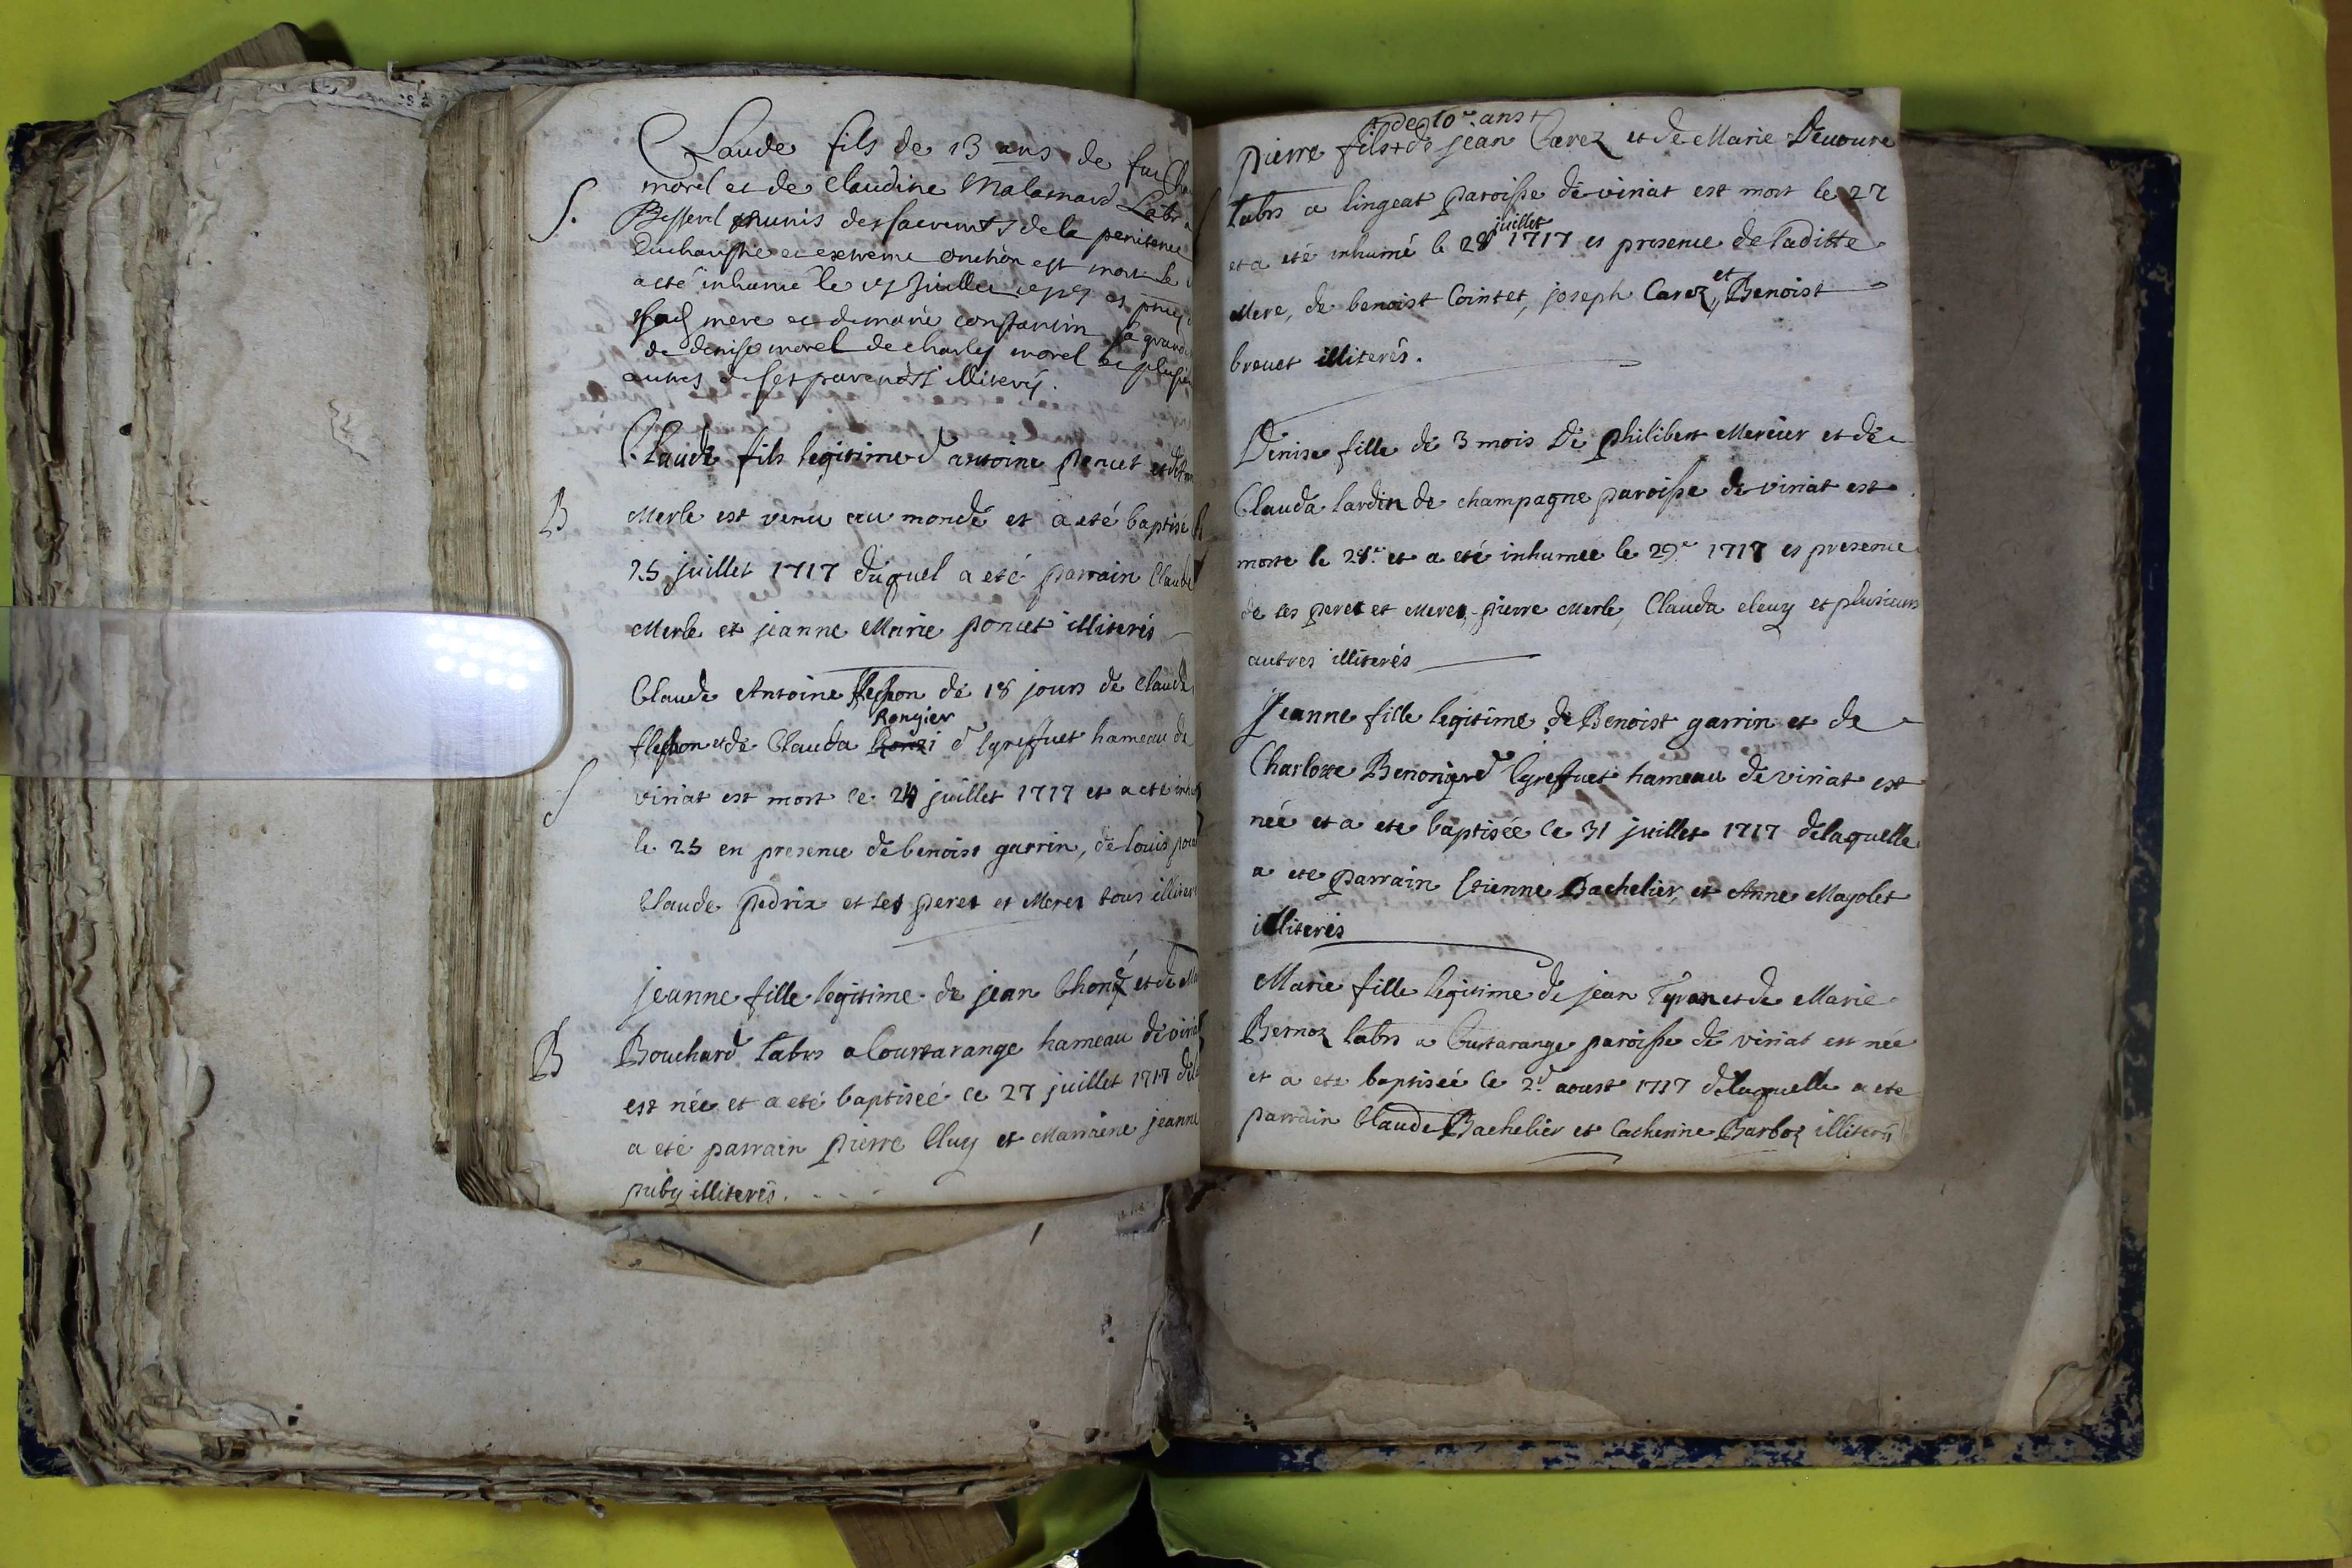 Claude fils de 13 ans de fu
morel et de Claudine Malarnard Labr
S.
Besserel munis des sacremts de la penitence
Eucharistie et extreme onction est mort le
a eté inhumé le Juillet es
mere et de marie constantin sa grand
de denise morel de charles morel et plusieu
autres de ses parents illiterés.
Claude fils legitime d'antoine poncet et de
B
Merle est venu au monde et a eté baptisé
25 juillet 1717 duquel a eté parrain Claude
Merle et jeanne Marie poncet illiterés
Claude Antoine flechon de 18 jours de Claude
Rongier
flechon et de Clauda d'lgreffuet hameau de
S
viriat est mort le 24 juillet 1717 et a eté inhu
le 25 en presence de benoist garrin, de louis
Claude pedrix et ses peres et Meres tous illiter
jeanne fille legitime de jean Chonz et de Ma
B
Bouchard labrs a Courtarange hameau de viriat
est née et a eté baptiséé le 27 juillet 1717 dela
a eté parrain pierre Cluy et Marraine jeanne
puby illiterés.
+ de 10e ans +
pierre fils + de jean Carez et de Marie Deuoure
labrs a lingeat paroisse de viriat est mort le 27
juillet
et a eté inhumé le 28 1717 es presence de laditte
et
Mere, de benoist Cointet, joseph Carez, Benoist
breuet illiterés.
Denise fille de 3 mois de philibert Mercier et de
Clauda lardin de champagne paroisse de viriat est
morte le 28e et a eté inhumée le 29e 1717 es presence
de ses peres et Meres, pierre Merle, Clauda cleuy et plusieurs
autres illiterés
Jeanne fille legitime de Benoist garrin et de
Charlotte Benonier d'lgreffuet hameau de viriat est
née et a eté baptisée le 31 juillet 1717 delaquelle
a eté parrain Etienne Bachelier et Anne Mayolet
illiterés
Marie fille legitime de jean Tyran et de Marie
Bernoz labrs a Curtarange paroisse de viriat est née
et a eté baptiséé le 2d aoust 1717 delaquelle a eté
parrain Claude Bachelier et Catherine Barboz illiterés